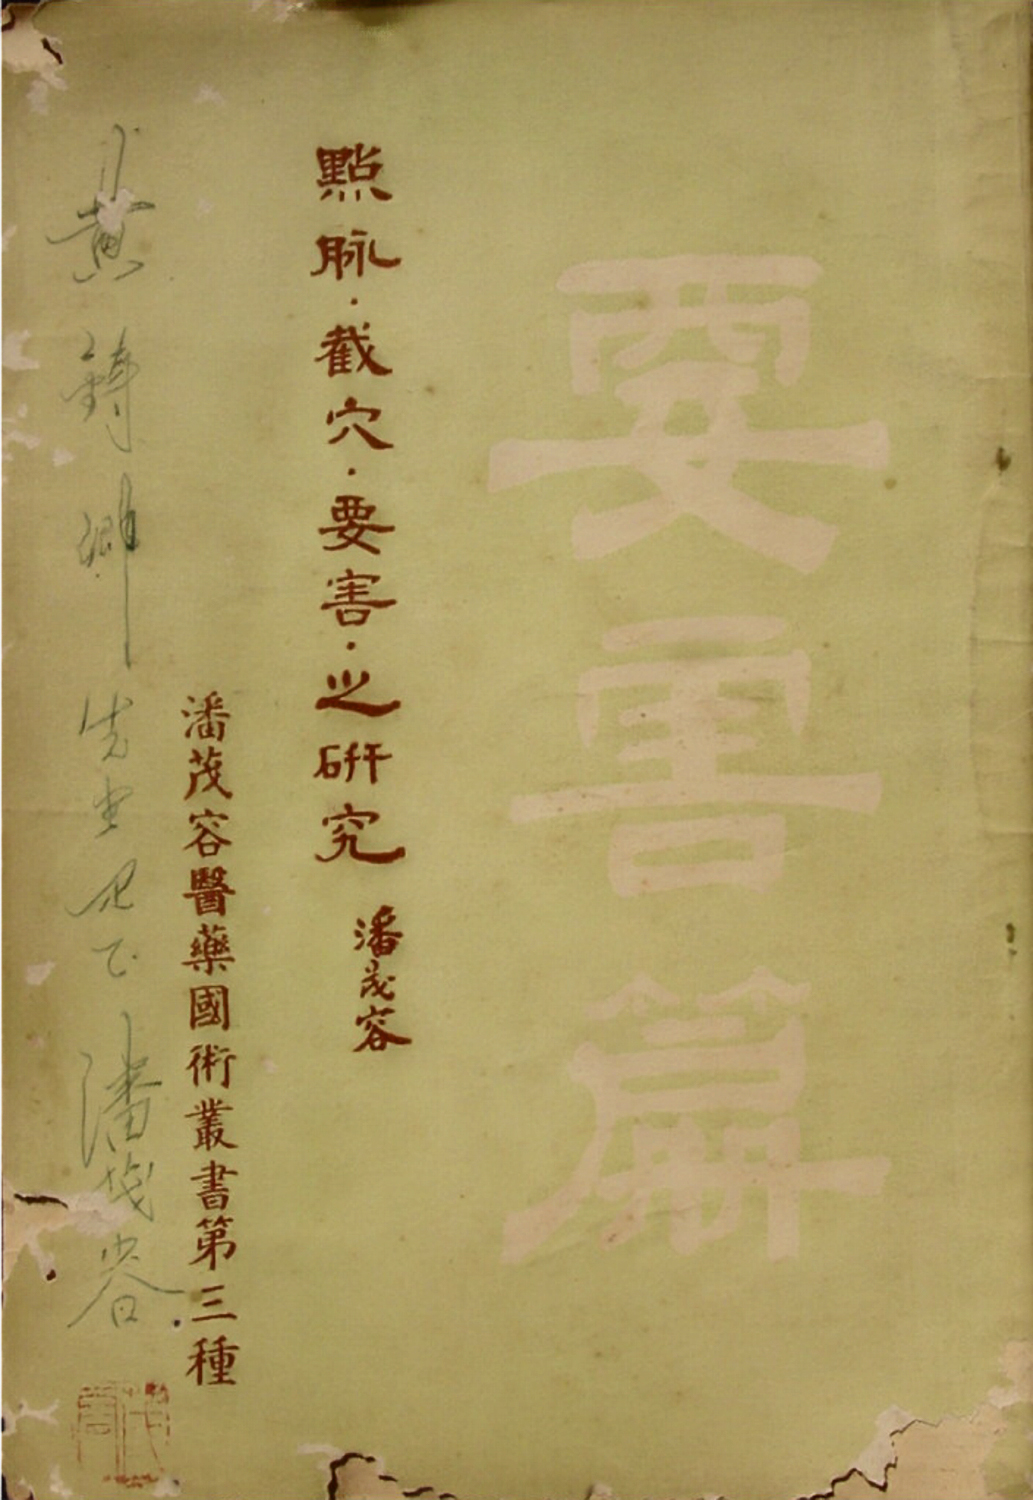 要害篇
點脉·截穴·要害·之硏究
潘茂容
潘茂容醫藥國術叢書第三種
黃鑄卿先生 正 潘茂容